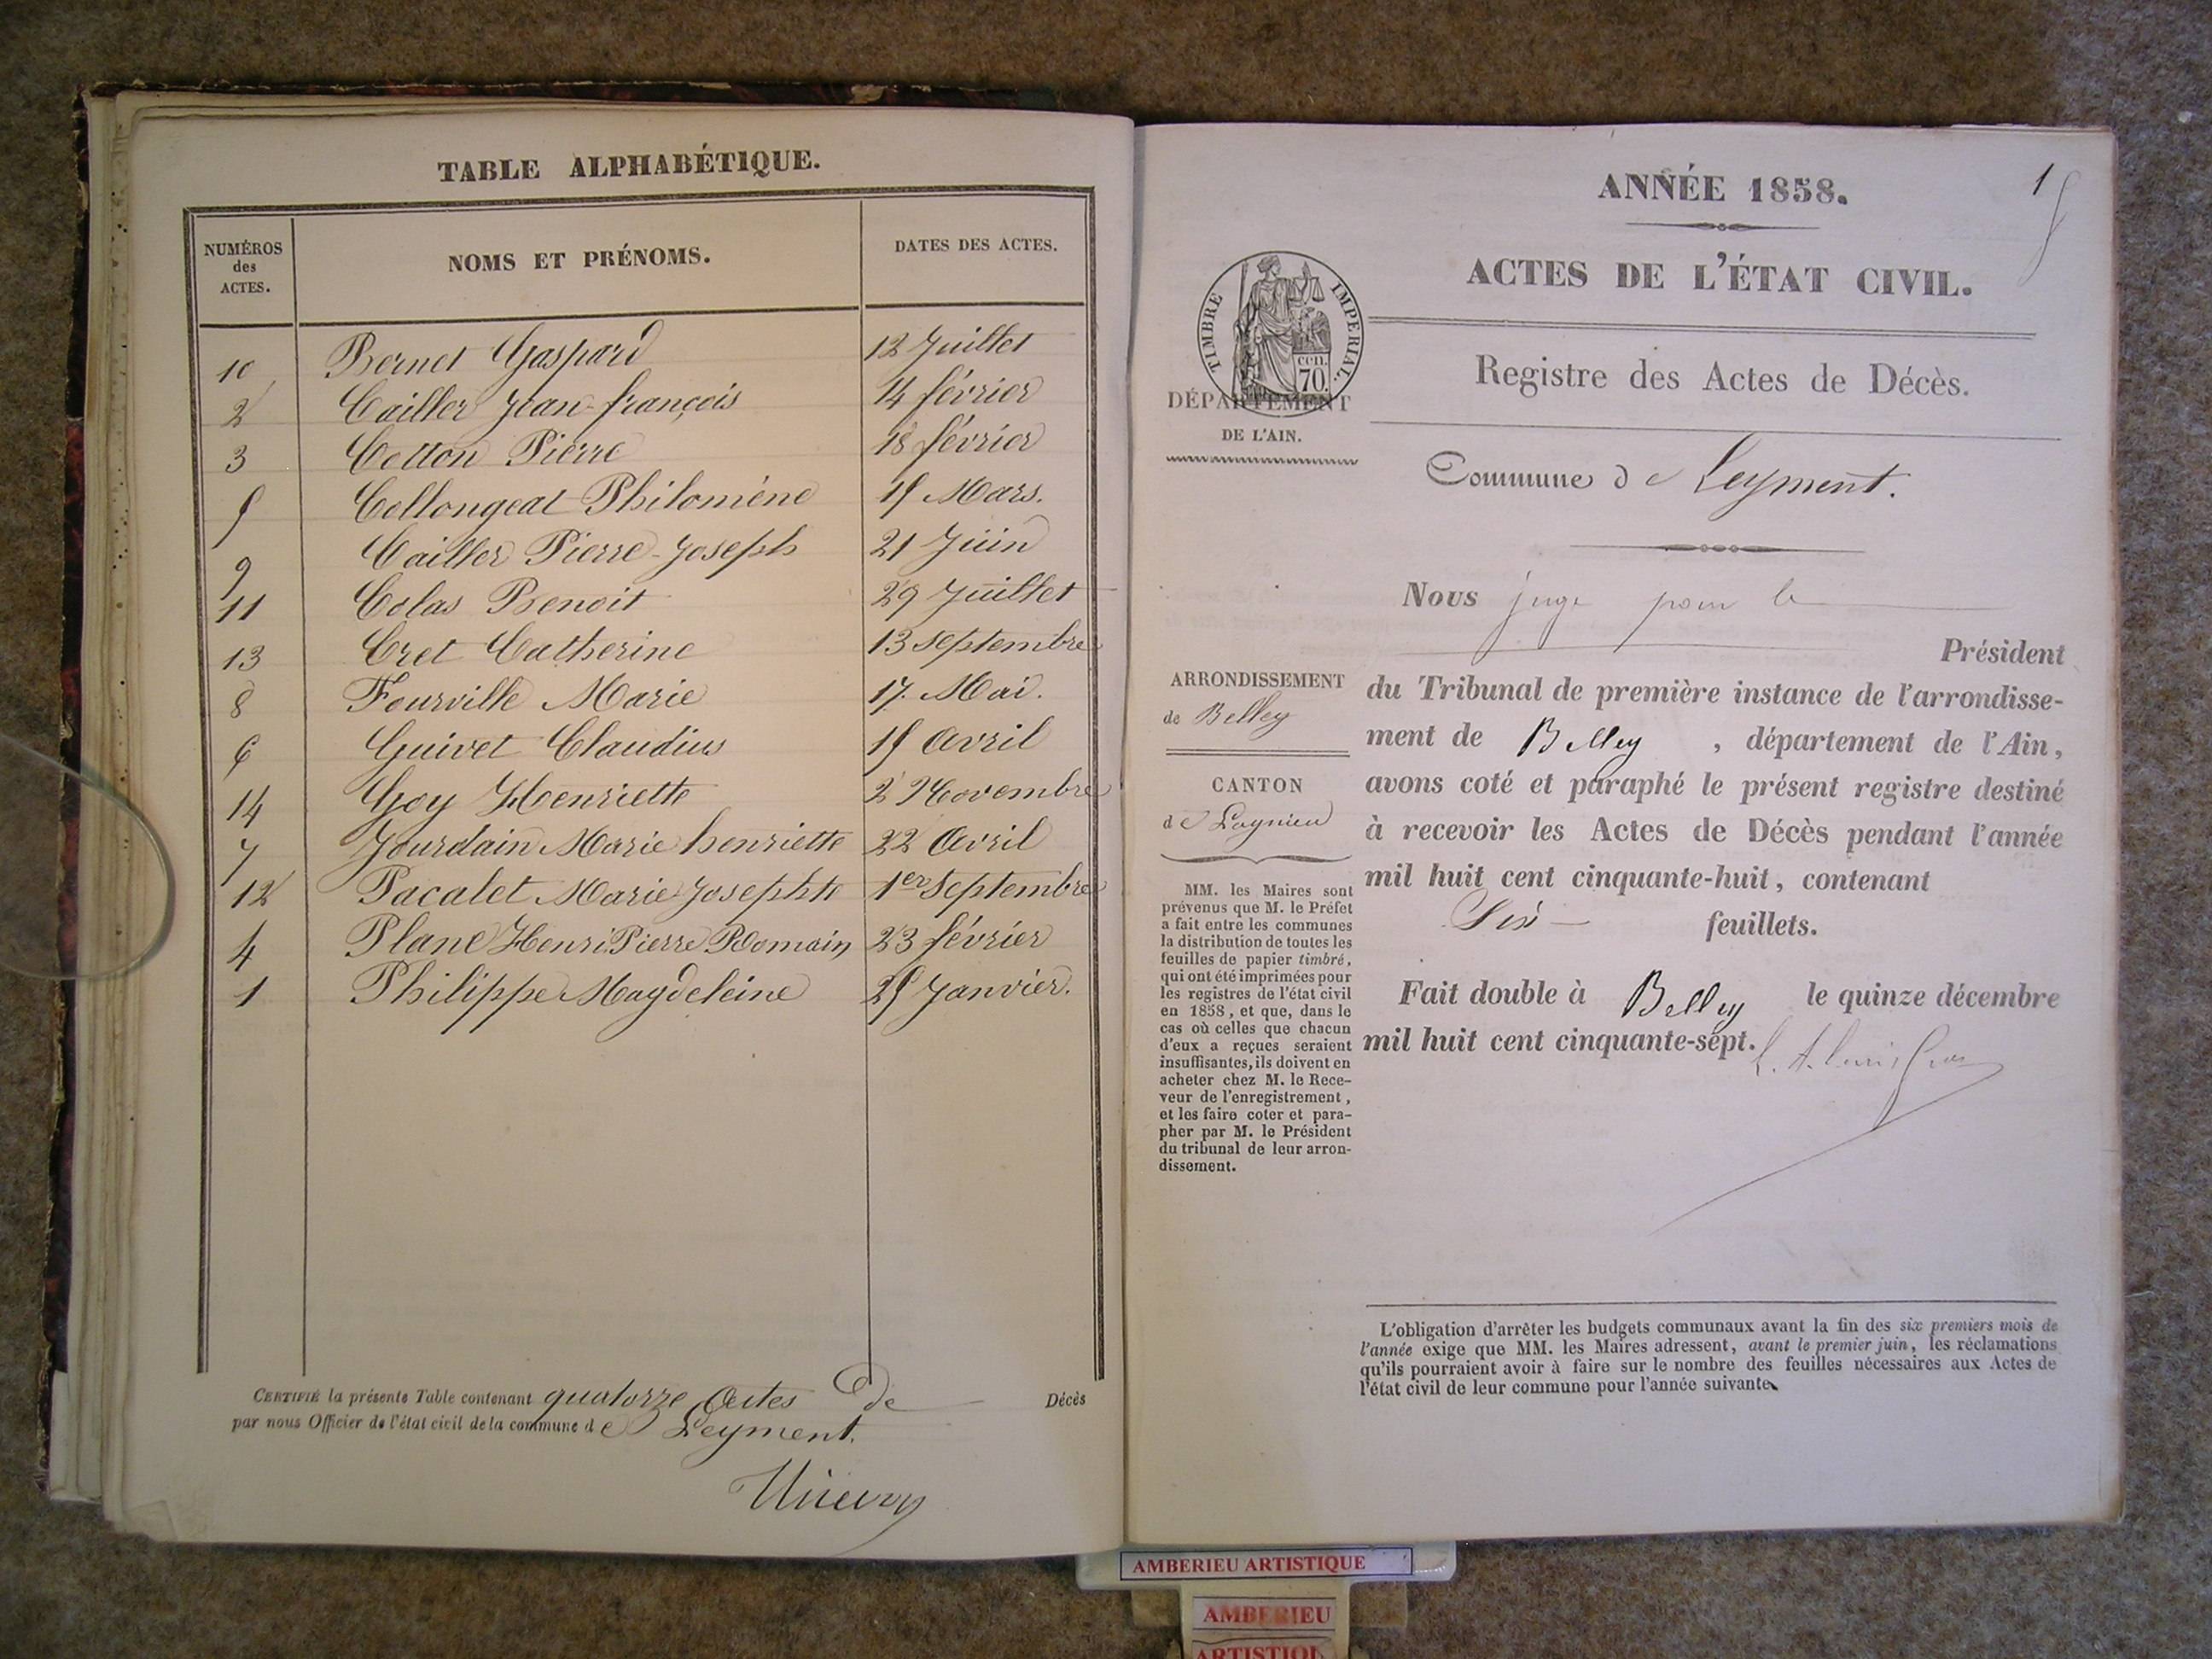 TABLE ALPHABÉTIQUE.
NUMÉROS des ACTES.
NOMS ET PRÉNOMS.
DATES DES ACTES.
10 Bernet Gaspard 12 Juillet
2 Cailler Jean-françois 14 février
3 Cotton Pierre 18 février
5 Collongeat Philomène 15 Mars.
9 Cailler Pierre-Joseph 21 Juin
11 Colas Benoit 29 Juillet
13 Cret Catherine 13 Septembre
8 Fourville Marie 17. Mai.
6 Guivet Claudius 15 Avril
14 Goy Henriette 2 Novembre
7 Jourdain Marie henriette 22 Avril
12 Pacalet Marie Josephte 1er Septembre
4 Plane Henri Pierre Romain 23 février
1 Philippe Magdeleine 25 Janvier.
CERTIFIÉ la présente Table contenant quatorze Actes de Décès
par nous Officier de l'état civil de la commune de Leyment.
1
ANNÉE 1858.
ACTES DE L'ÉTAT CIVIL.
TIMBRE IMPERIAL.
cen. 70.
Registre des Actes de Décès.
DÉPARTEMENT
DE L'AIN.
Commune de Leyment.
Nous juge pour le
Président
ARRONDISSEMENT
de Belley
CANTON
de Lagnieu
du Tribunal de première instance de l'arrondisse-
ment de Belley, département de l'Ain,
avons coté et paraphé le présent registre destiné
à recevoir les Actes de Décès pendant l'année
mil huit cent cinquante-huit, contenant
Six feuillets.
Fait double à Belley le quinze décembre
mil huit cent cinquante-sept.
MM. les Maires sont
prévenus que M. le Préfet
a fait entre les communes
la distribution de toutes les
feuilles de papier timbré,
qui ont été imprimées pour
les registres de l'état civil
en 1858, et que, dans le
cas où celles que chacun
d'eux a reçues seraient
insuffisantes, ils doivent en
acheter chez M. le Rece-
veur de l'enregistrement,
et les faire coter et para-
pher par M. le Président
du tribunal de leur arron-
dissement.
L'obligation d'arrêter les budgets communaux avant la fin des six premiers mois de
l'année exige que MM. les Maires adressent, avant le premier juin, les réclamations
qu'ils pourraient avoir à faire sur le nombre des feuilles nécessaires aux Actes de
l'état civil de leur commune pour l'année suivante.
AMBERIEU ARTISTIQUE
AMBERIEU